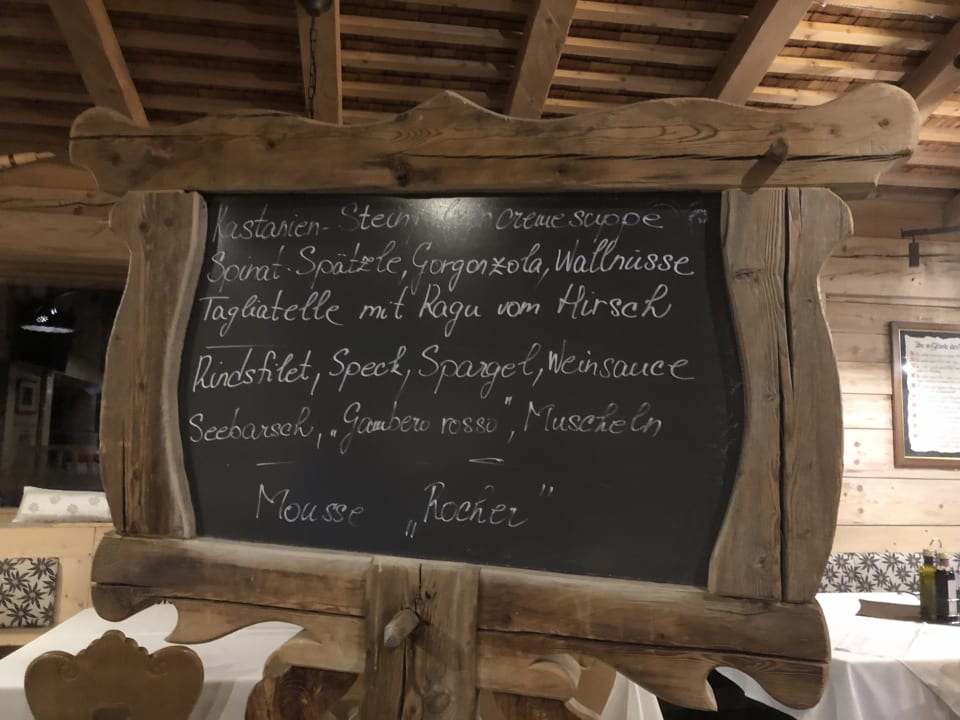 Kastanien- cremesuppe
Spinat-Spätzle, Gorgonzola, Wallnüsse
Tagliatelle mit Ragu vom Hirsch
Rindsfilet, Speck, Spargel, Weinsauce
Seebarsch, „Gambero rosso", Muscheln
Mousse „Rocher"